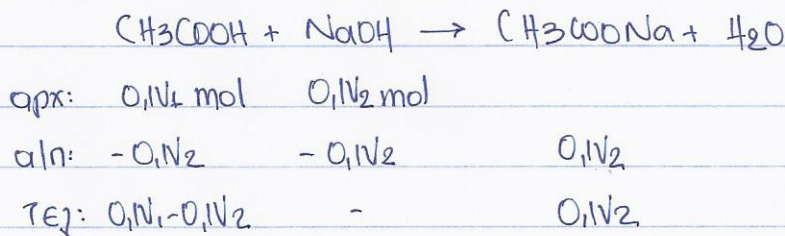 CH3COOH + NaOH → CH3COONa + H2O
αρχ: 0,1V1 mol 0,1V2 mol
α/π: -0,1V2 -0,1V2 0,1V2
τελ: 0,1V1-0,1V2 - 0,1V2